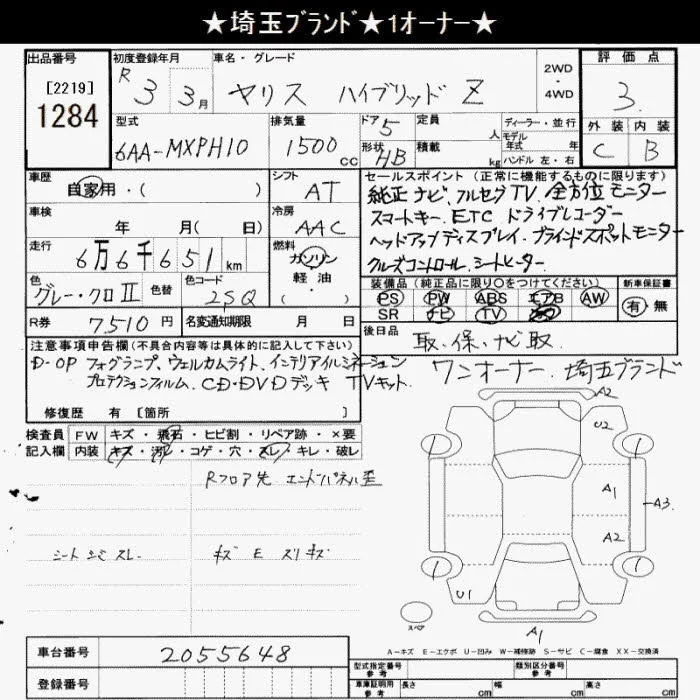 ★埼玉ブランド★1オーナー★
出品番号 初度登録年月 車名・グレード 2WD・4WD 評価点
[2219] R 3 3月 ヤリス ハイブリッド Z 3
1284
型式 排気量 ドア 5 定員 人 ディーラー・並行 外装 内装
6AA-MXPH10 1500cc 形状 HB 積載 kg モデル年式 年 ハンドル 左・右 C B
車歴 自家用・( ) シフト AT
セールスポイント (正常に機能するものに限ります)
純正ナビ、フルセグTV、全方位モニター
車検 年 月( 日) 冷房 AAC
スマートキー、ETC ドライブレコーダー
走行 6万6千651km 燃料 ガソリン 軽油・( )
ヘッドアップディスプレイ、ブラインドスポットモニター
クルーズコントロール、シートヒーター
色 グレー・クロⅡ 色替 色コード 2SQ
装備品 (純正品に限り○をつけてください) 新車保証書
PS PW ABS エアB AW 有・無
SR ナビ TV
R券 7,510円 名変通知期限 月 日
後日品 取、保、ナビ取
注意事項申告欄(不具合内容等は具体的に記入して下さい)
D-OP フォグランプ、ウェルカムライト、インテリアイルミネーション
プロテクションフィルム、CD・DVDデッキ TVキット
ワンオーナー、埼玉ブランド
修復歴 有 [箇所 ]
検査員記入欄 FW キズ・飛石・ヒビ割・リペア跡・×要
内装 キズ・汚れ・コゲ・穴・スレ・キレ・破レ
Rフロア先 エンドパネル歪
シート シミ スレ
キズ E スリキズ
A2
U2
A1
A3
A2
U1
A1
スペア
A-キズ E-エクボ U-凹み W-補修跡 S-サビ C-腐食 XX-交換済
車台番号 2055648 型式指定番号 参考 類別区分番号 参考
登録番号 車庫証明用 参考 長さ cm 幅 cm 高さ cm